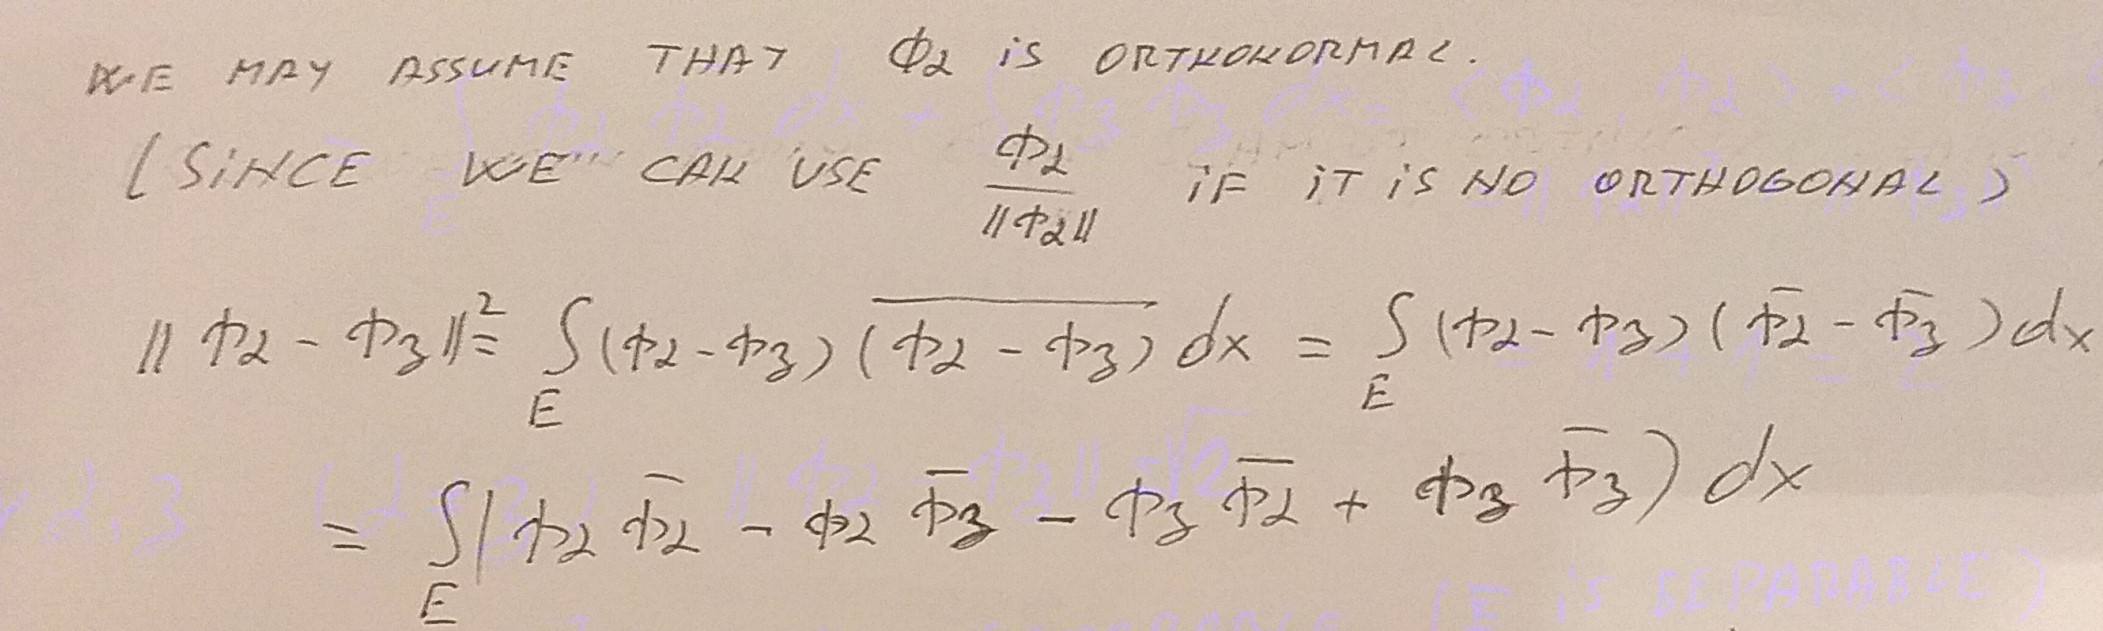 WE MAY ASSUME THAT Φ₂ is ORTHONORMAL.
(SINCE WE CAN USE Φ₂/‖Φ₂‖ iF iT iS NO ORTHOGONAL)
‖Φ₂ - Φ₃‖² = ∫_E (Φ₂ - Φ₃) (\overline{Φ₂ - Φ₃}) dx = ∫_E (Φ₂ - Φ₃) (Φ̄₂ - Φ̄₃) dx
= ∫_E (Φ₂ Φ̄₂ - Φ₂ Φ̄₃ - Φ₃ Φ̄₂ + Φ₃ Φ̄₃) dx
(E iS SEPARABLE)